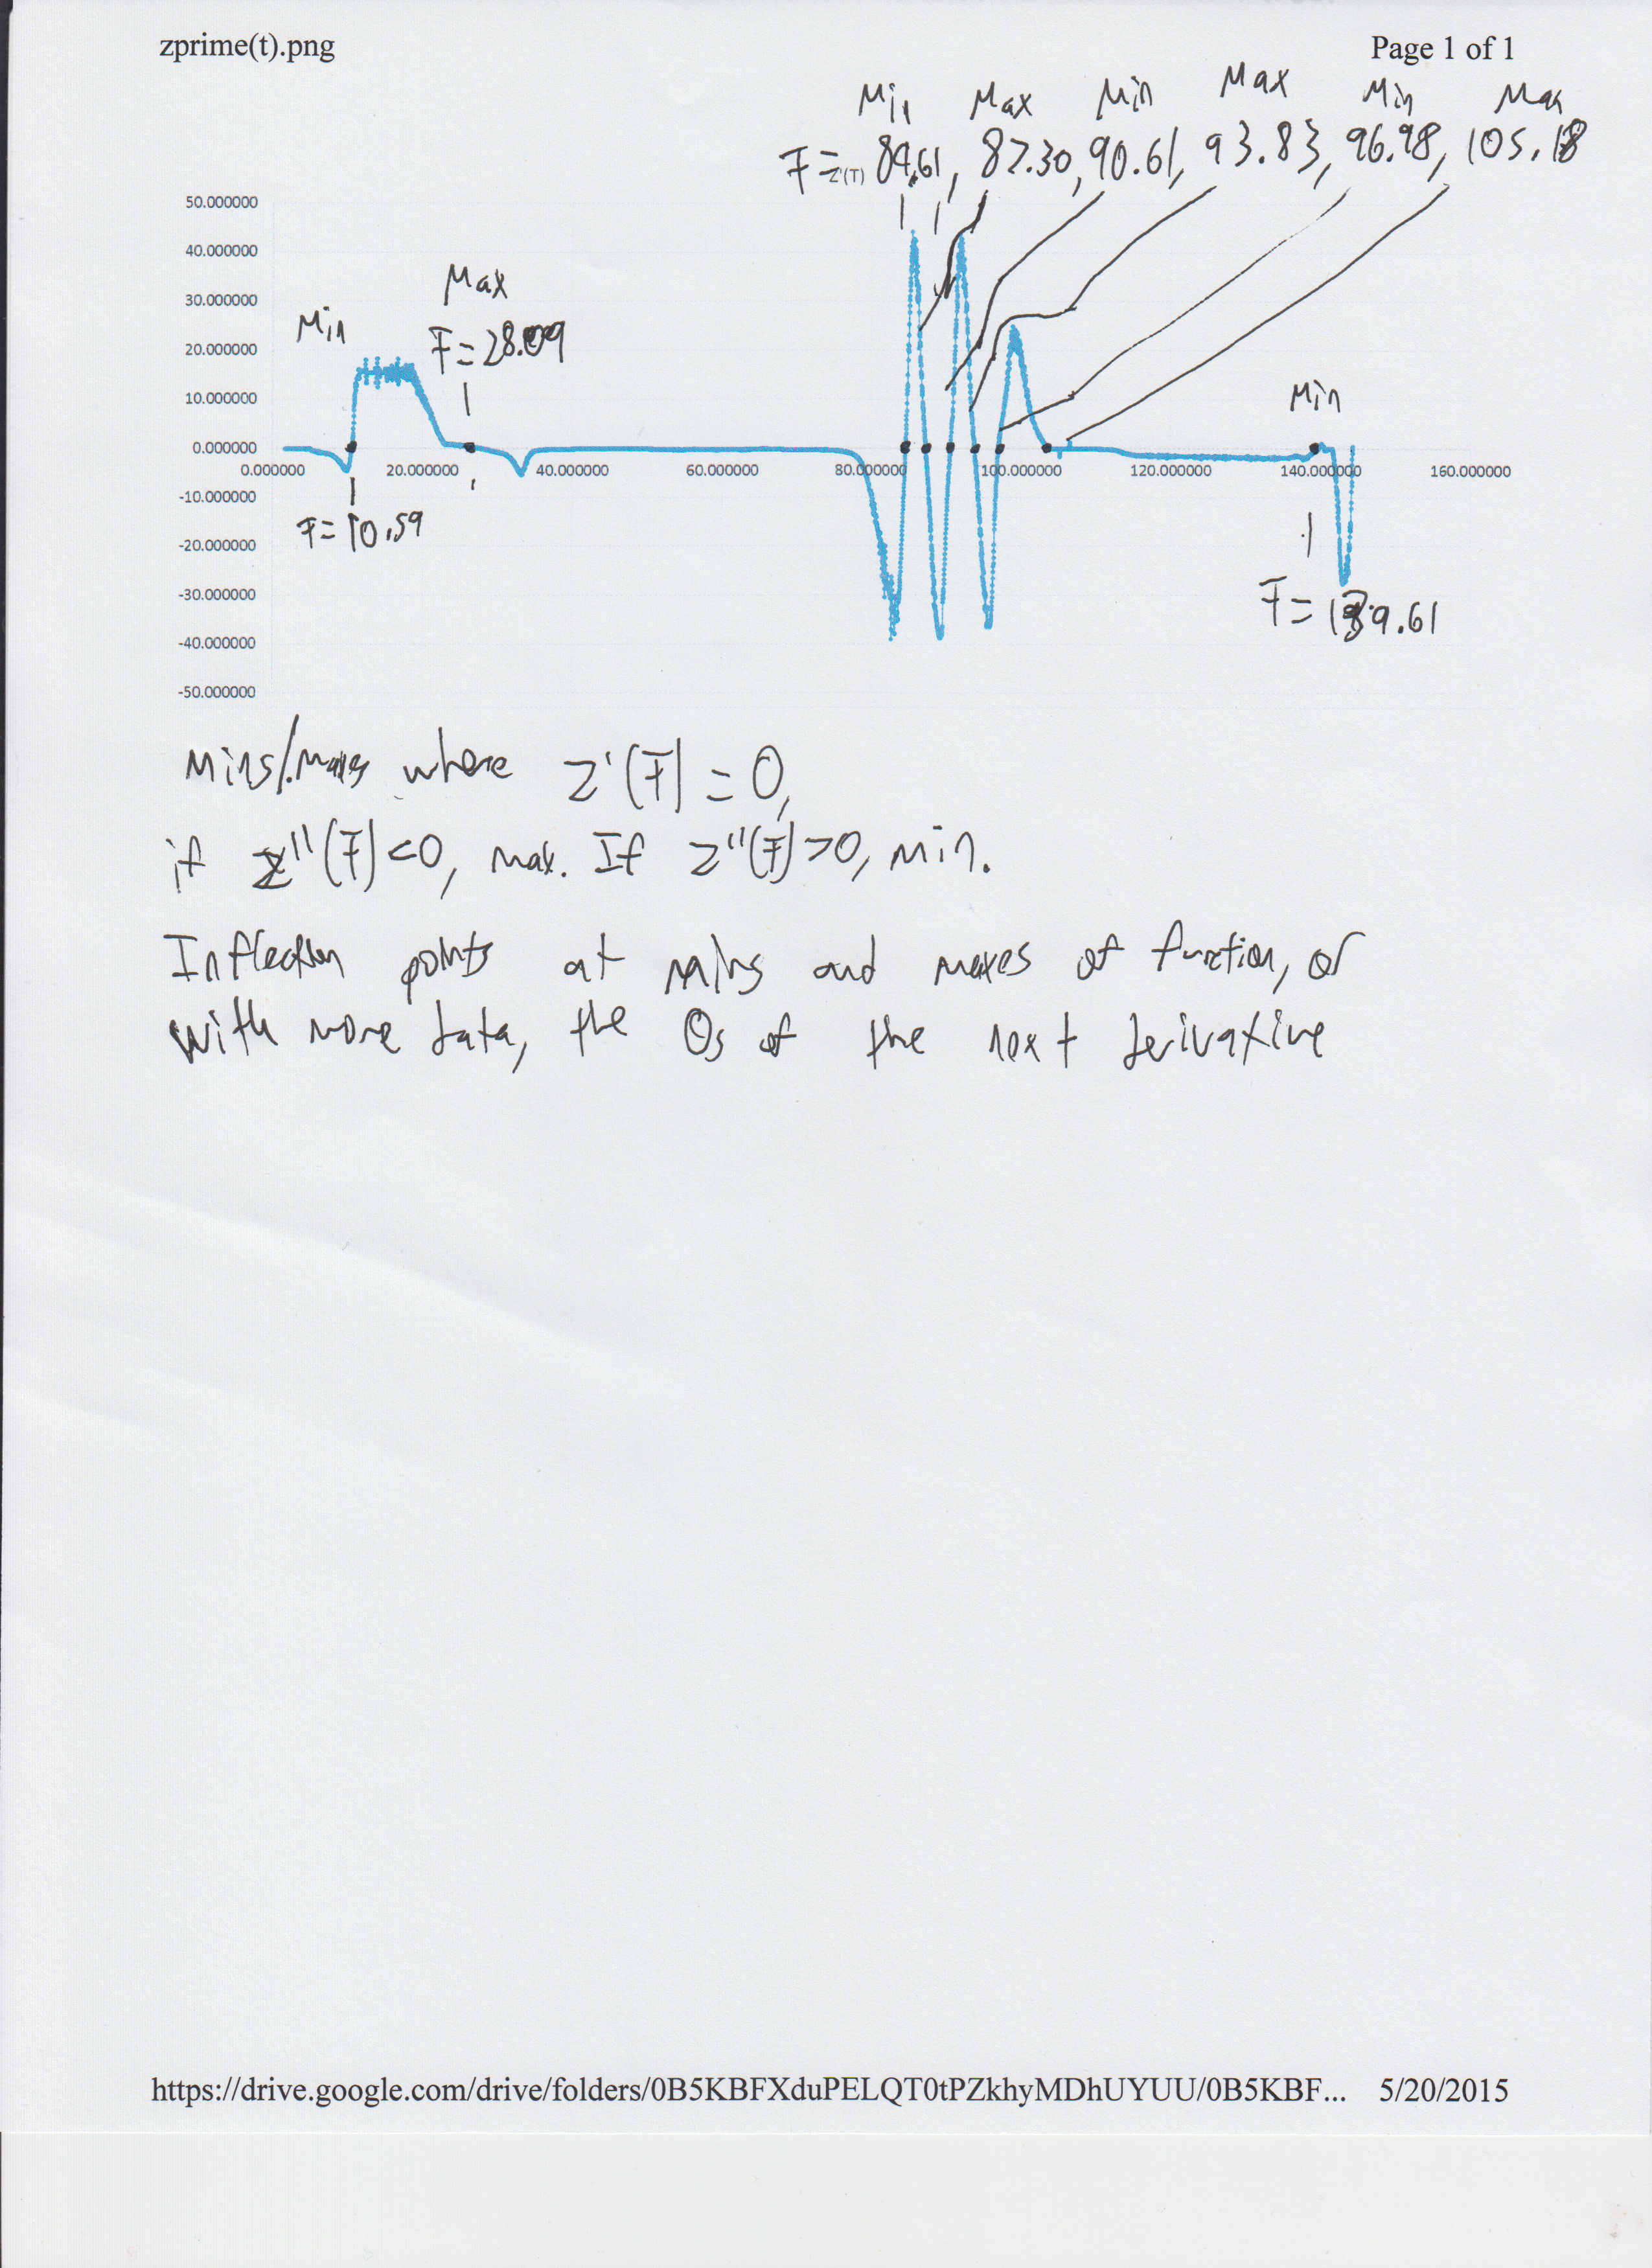 zprime(t).png Page 1 of 1
Min Max Min Max Min Max
T = 84.61, 87.30, 90.61, 93.83, 96.98, 105.18
Z'(T)
50.000000
40.000000
30.000000
20.000000
10.000000
0.000000
-10.000000
-20.000000
-30.000000
-40.000000
-50.000000
0.000000 20.000000 40.000000 60.000000 80.000000 100.000000 120.000000 140.000000 160.000000
Min
Max
T = 28.09
T = 10.59
Min
T = 139.61
Mins/Maxes where Z'(T) = 0,
if Z''(T) < 0, max. If Z''(T) > 0, min.
Inflection points at mins and maxes of function, or
with more data, the 0s of the next derivative
https://drive.google.com/drive/folders/0B5KBFXduPELQT0tPZkhyMDhUYUU/0B5KBF... 5/20/2015